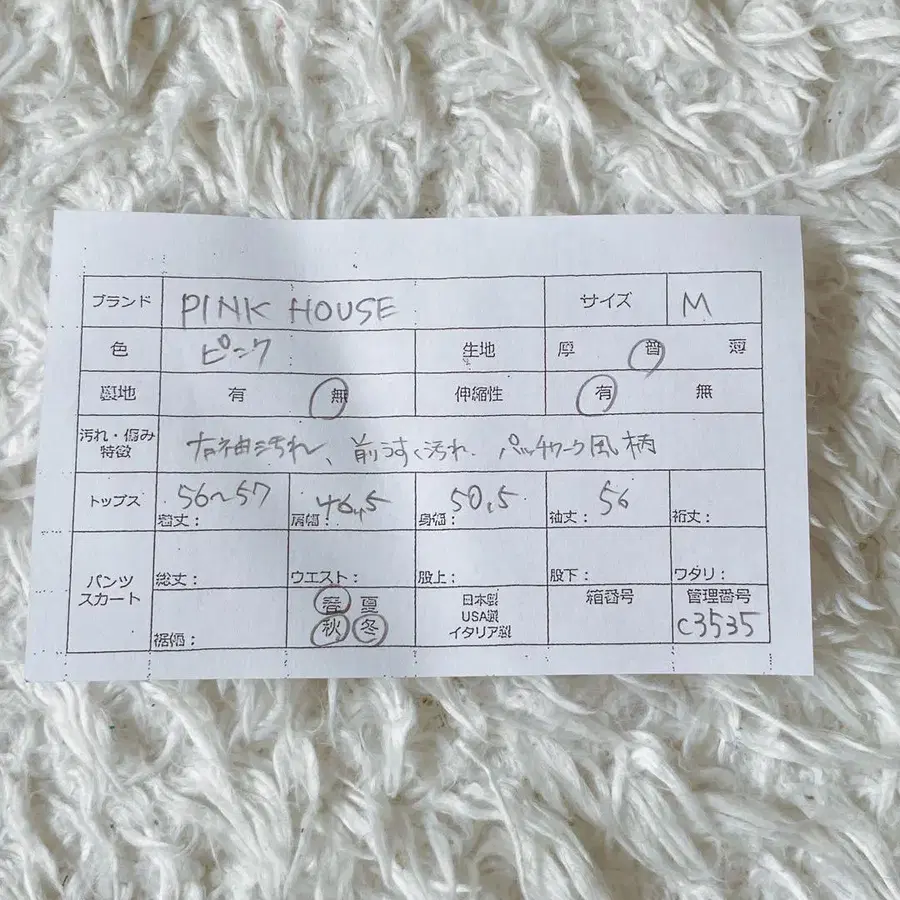 ブランド PINK HOUSE サイズ M
色 ピンク 生地 厚 普 薄
裏地 有 無 伸縮性 有 無
汚れ・傷み
特徴 右袖汚れ、前うすく汚れ. パッチワーク風柄
トップス 着丈： 56〜57 肩幅： 46.5 身幅： 50.5 袖丈： 56 裄丈：
パンツ
スカート
総丈： ウエスト： 股上： 股下： ワタリ：
裾幅：
春 夏
秋 冬
日本製
USA製
イタリア製
箱番号
管理番号
C3535